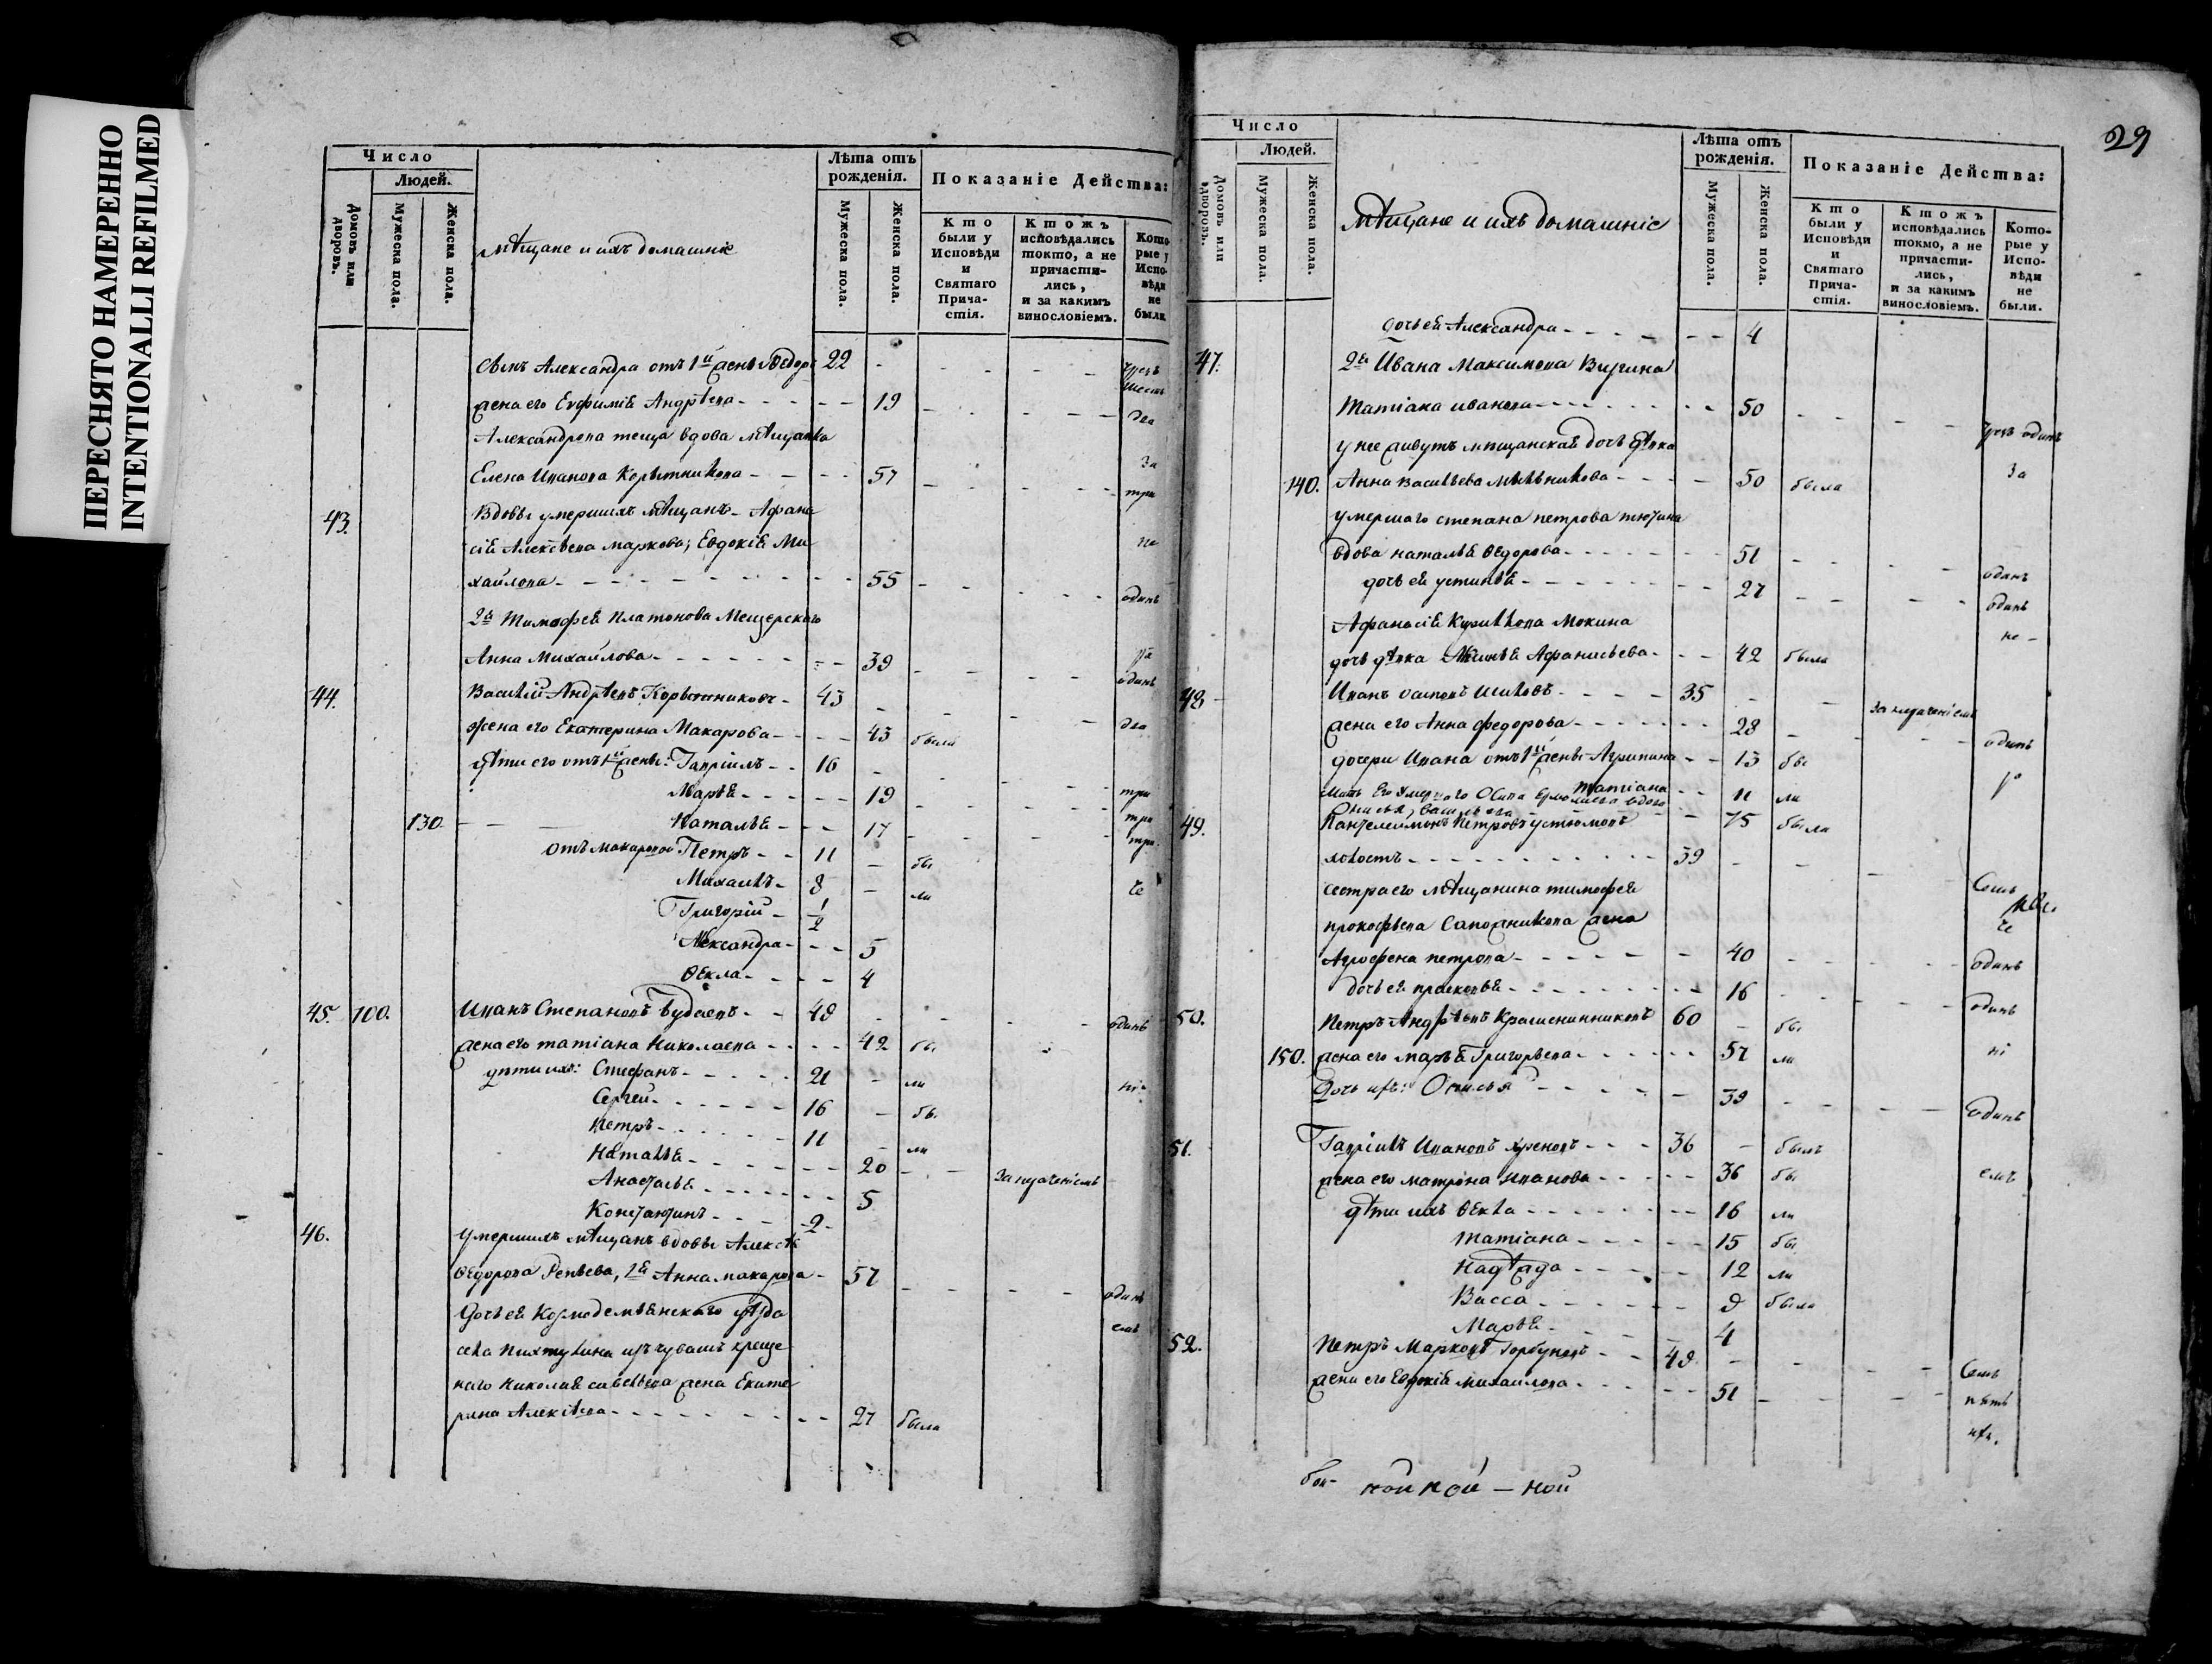 ПЕРЕСНЯТО НАМЕРЕННО
INTENTIONALLI REFILMED
Число
Людей.
Домовъ или дворовъ.
Мужеска пола.
Женска пола.
мѣщане и ихъ домашніе
Лѣта отъ рожденія.
Мужеска пола.
Женска пола.
Показаніе Действа:
Кто были у Исповѣди и Святаго Причастія.
Ктожъ исповѣдались токмо, а не причастились, и за какимъ винословіемъ.
Которые у Исповѣди не были.
Сынъ Александра отъ 1й жены Ѳедоръ 22 шесть
жена его Евфимія Андрѣева 19 два
Александрова теща вдова мѣщанка
Елена Иванова Корытникова 57 За три
43. Вдовы умершихъ мѣщанъ Афана
сія Алексѣева Маркова, Евдокія Ми
хайлова 55 одинъ
2я Тимофея Платонова Мещерскаго
Анна Михайлова 39 одинъ
44. Василій Андрѣевъ Корытниковъ 43 два
жена его Екатерина Макарова 43 была
дѣти его отъ 1й жены: Гавріилъ 16 три
Марья 19 три
130. Наталья 17 три
отъ Макаровой Петръ 11 бы
Михаилъ 8 ли
Григорій 1/2
Александра 5
Ѳекла 4
45. 100. Иванъ Степановъ Будаевъ 49 одинъ
жена его Татіана Николаева 42 бы
дѣти ихъ: Стефанъ 21 ли
Сергей 16 бы
Петръ 11 ли
Наталья 20
Анастасья 5
Константинъ 2
46. умершихъ мѣщанъ вдовы Алексѣя
Ѳедорова Репьева, 1я Анна Макарова 57 одинъ
Дочь ея Козмодемьянскаго уѣзда
села Пихтулина изъ чувашъ креще
наго Николая Савельева жена Екате
рина Алексѣева 27 была
29
Число
Людей.
Домовъ или дворовъ.
Мужеска пола.
Женска пола.
мѣщане и ихъ домашніе
Лѣта отъ рожденія.
Мужеска пола.
Женска пола.
Показаніе Действа:
Кто были у Исповѣди и Святаго Причастія.
Ктожъ исповѣдались токмо, а не причастились, и за какимъ винословіемъ.
Которые у Исповѣди не были.
дочь ея Александра 4
47. 2я Ивана Максимова
Татіана Иванова 50 одинъ
у нее живутъ мѣщанская дочь дѣвка
140. Анна Васильева Мѣльникова 50 была За
умершаго Степана Петрова
вдова Наталья Ѳедорова 51 одинъ
дочь ея Устинья 27 одинъ
Афанасія Кирилова Мокина не
дочь дѣвка Афанасьева 42 была
48 Иванъ Осиповъ Шиловъ 35
жена его Анна Федорова 28 одинъ
дочери Ивана отъ 1й жены Агрипина 13 бы
Татіана 11 ли
Мать его умершаго Осипа вдова
Васильева 75 была
49. Пантелеимонъ Петровъ
холостъ 39 семь
сестра его мѣщанина Тимофея
Прокофьева Сапожникова жена
Агрофена Петрова 40 одинъ
дочь ея Прасковья 16 одинъ
50. Петръ Андрѣевъ Крашенинниковъ 60 бы
150. жена его Марья Григорьева 57 ли
Дочь ихъ: 39 одинъ
51. Гавріилъ Ивановъ Хреновъ 36 былъ
жена его Матрона Иванова 36 бы
дѣти ихъ Ѳекла 16 ли
Татіана 15 бы
Надѣжда 12 ли
Васса 9 была
Марья 4
52. Петръ Марковъ Горбуновъ 49 семь
жена его Евдокія Михайлова 51 пять